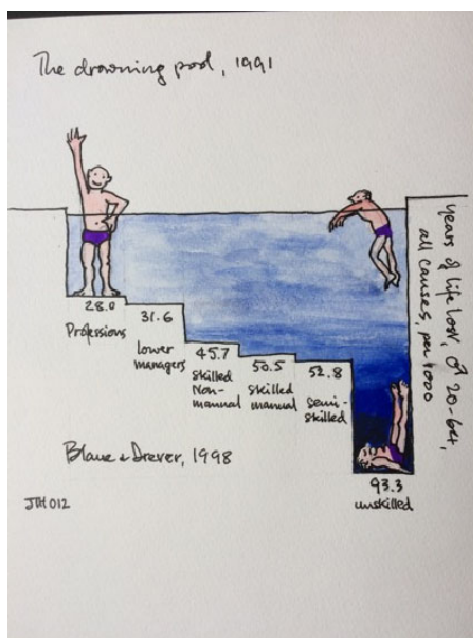 The drowning pool, 1991
28.0
Professions
31.6
lower
managers
45.7
skilled
Non-
manual
50.5
skilled
manual
52.8
semi-
skilled
93.3
unskilled
years of life lost, ♂ 20-64,
all causes, per 1000
Blane & Drever, 1998
JTH 012